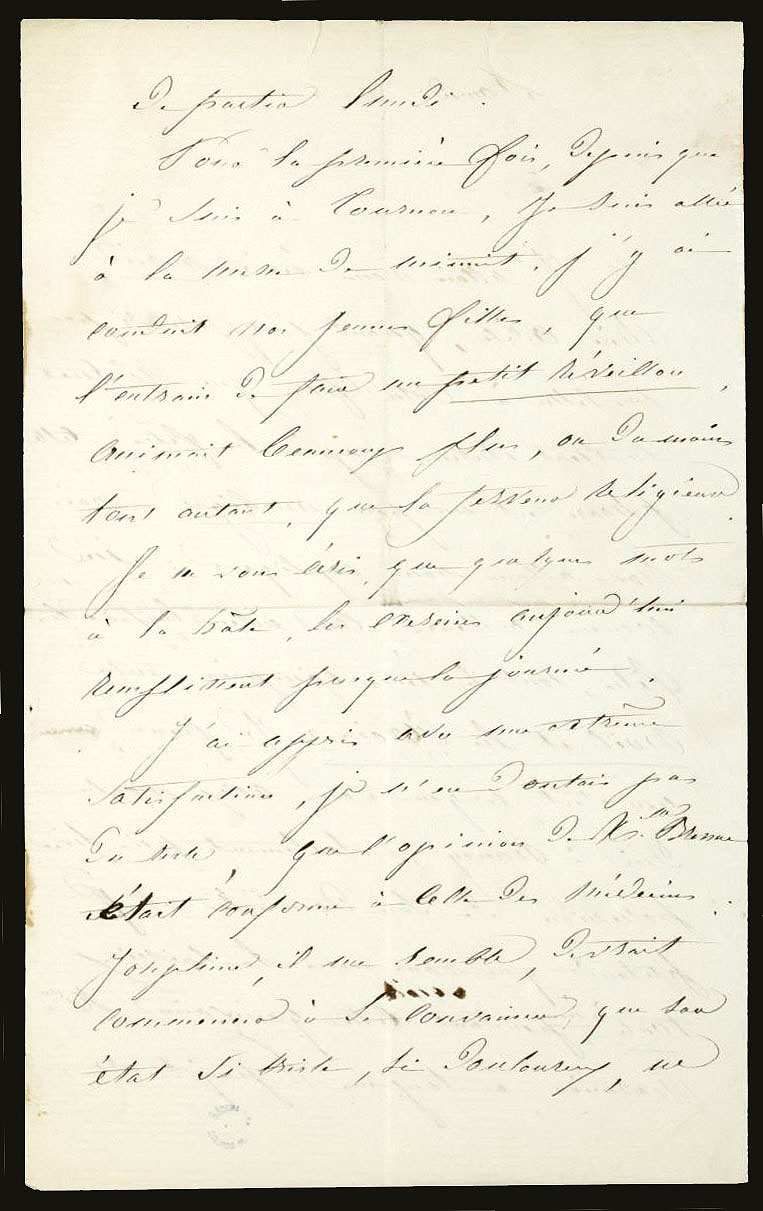 de partir lundi.
Pour la première fois, depuis que
je suis à Tournon, je suis allé
à la messe de minuit. j'y ai
conduit nos jeunes filles, que
l'entrain de faire un petit réveillon,
animait beaucoup plus, ou du moins
tout autant, que la ferveur religieuse.
Je ne vous écris, que quelques mots
à la hâte, les exercices aujourd'hui
remplissent presque la journée.
J'ai appris avec une extrême
satisfaction, je n'en doutais pas
du reste, que l'opinion de M.
était conforme à celle des médecins.
Joséphine, il me semble, devrait
commencer à se convaincre, que son
état si triste, si douloureux, ne